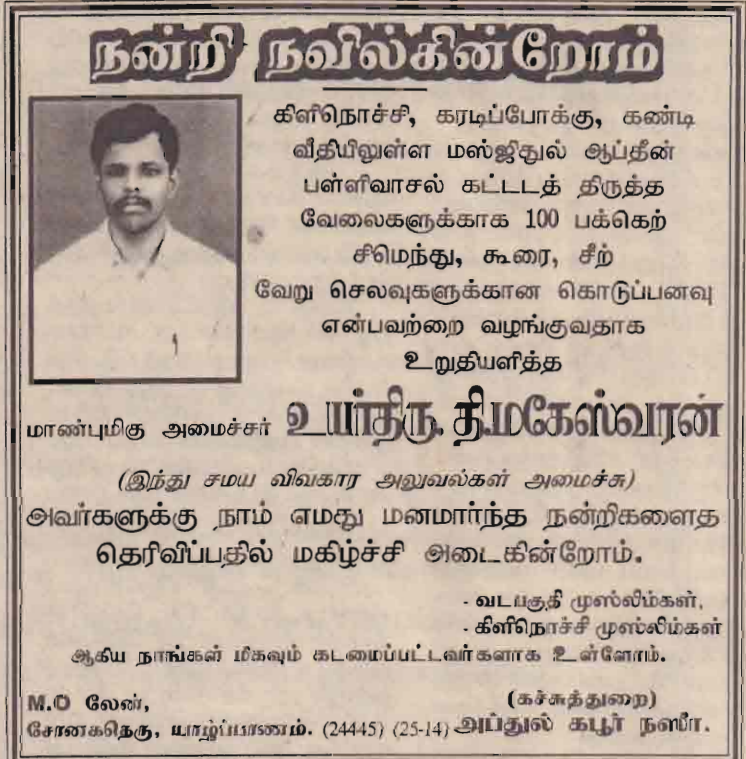 நன்றி நவில்கின்றோம்
கிளிநொச்சி, கரடிப்போக்கு, கண்டி
வீதியிலுள்ள மஸ்ஜிதுல் ஆப்தீன்
பள்ளிவாசல் கட்டடத் திருத்த
வேலைகளுக்காக 100 பக்கெற்
சிமெந்து, கூரை, சீற்
வேறு செலவுகளுக்கான கொடுப்பனவு
என்பவற்றை வழங்குவதாக
உறுதியளித்த
மாண்புமிகு அமைச்சர் உயர்திரு. தி.மகேஸ்வரன்
(இந்து சமய விவகார அலுவல்கள் அமைச்சு)
அவர்களுக்கு நாம் எமது மனமார்ந்த நன்றிகளைத
தெரிவிப்பதில் மகிழ்ச்சி அடைகின்றோம்.
- வடபகுதி முஸ்லிம்கள்,
- கிளிநொச்சி முஸ்லிம்கள்
ஆகிய நாங்கள் மிகவும் கடமைப்பட்டவர்களாக உள்ளோம்.
M.O லேன்,
சோனகதெரு, யாழ்ப்பாணம். (24445) (25-14)
(கச்சுத்துறை)
அப்துல் கபூர் நஸீர்.